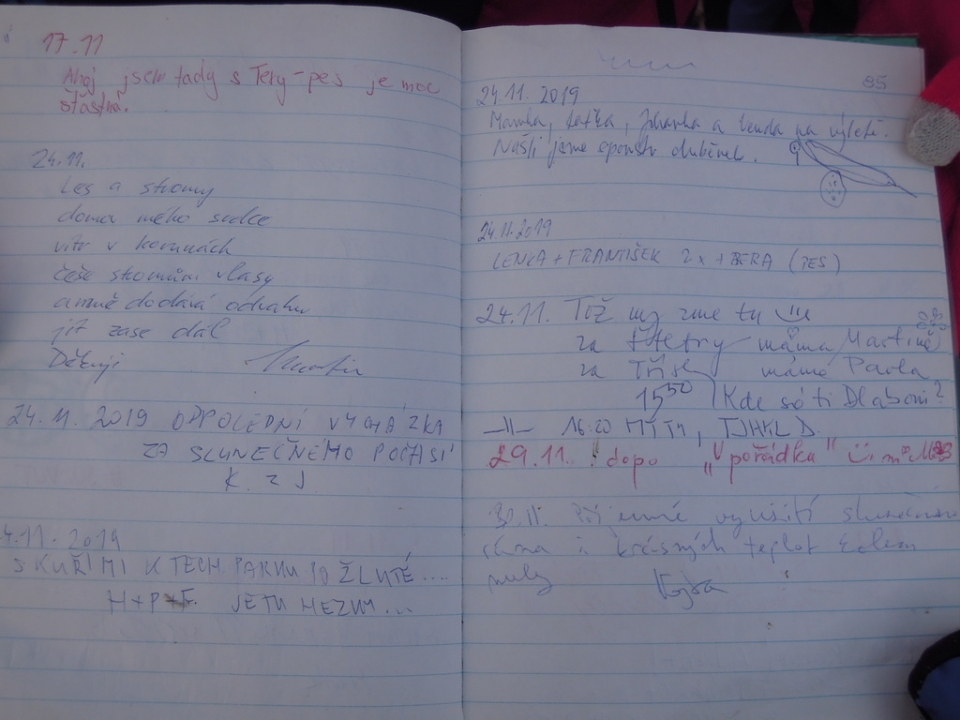 17.11
Ahoj jsem tady s Tery-pes je moc
šťastná.
24.11.
Les a stromy
doma mého srdce
vítr v korunách
češe stromům vlasy
a mně dodává odvahu
jít zase dál
Děkuji Martin
24.11.2019 ODPOLEDNÍ VYCHÁZKA
ZA SLUNEČNÉHO POČASÍ
K. Z J
4.11.2019
S KUŘIMI K TECH. PARKU PO ŽLUTÉ....
H+P+F. JE TU HEZKY...
85
24.11. 2019
Mamka, taťka, Johanka a Lenda na výletě.
Našli jsme spoustu duběnek.
24.11.2019
LENKA + FRANTIŠEK 2x + BERA (PES)
24.11. Tož my zme tu
za máma Martině
za mámé Pavla
15⁵⁰ Kde só ti Dlaboni?
-11- 16:20
29.11. ! dopo "V pořádku"
30.11. Příjemné využití slunečního
rána i krásných teplot kolem
nuly Vojta !